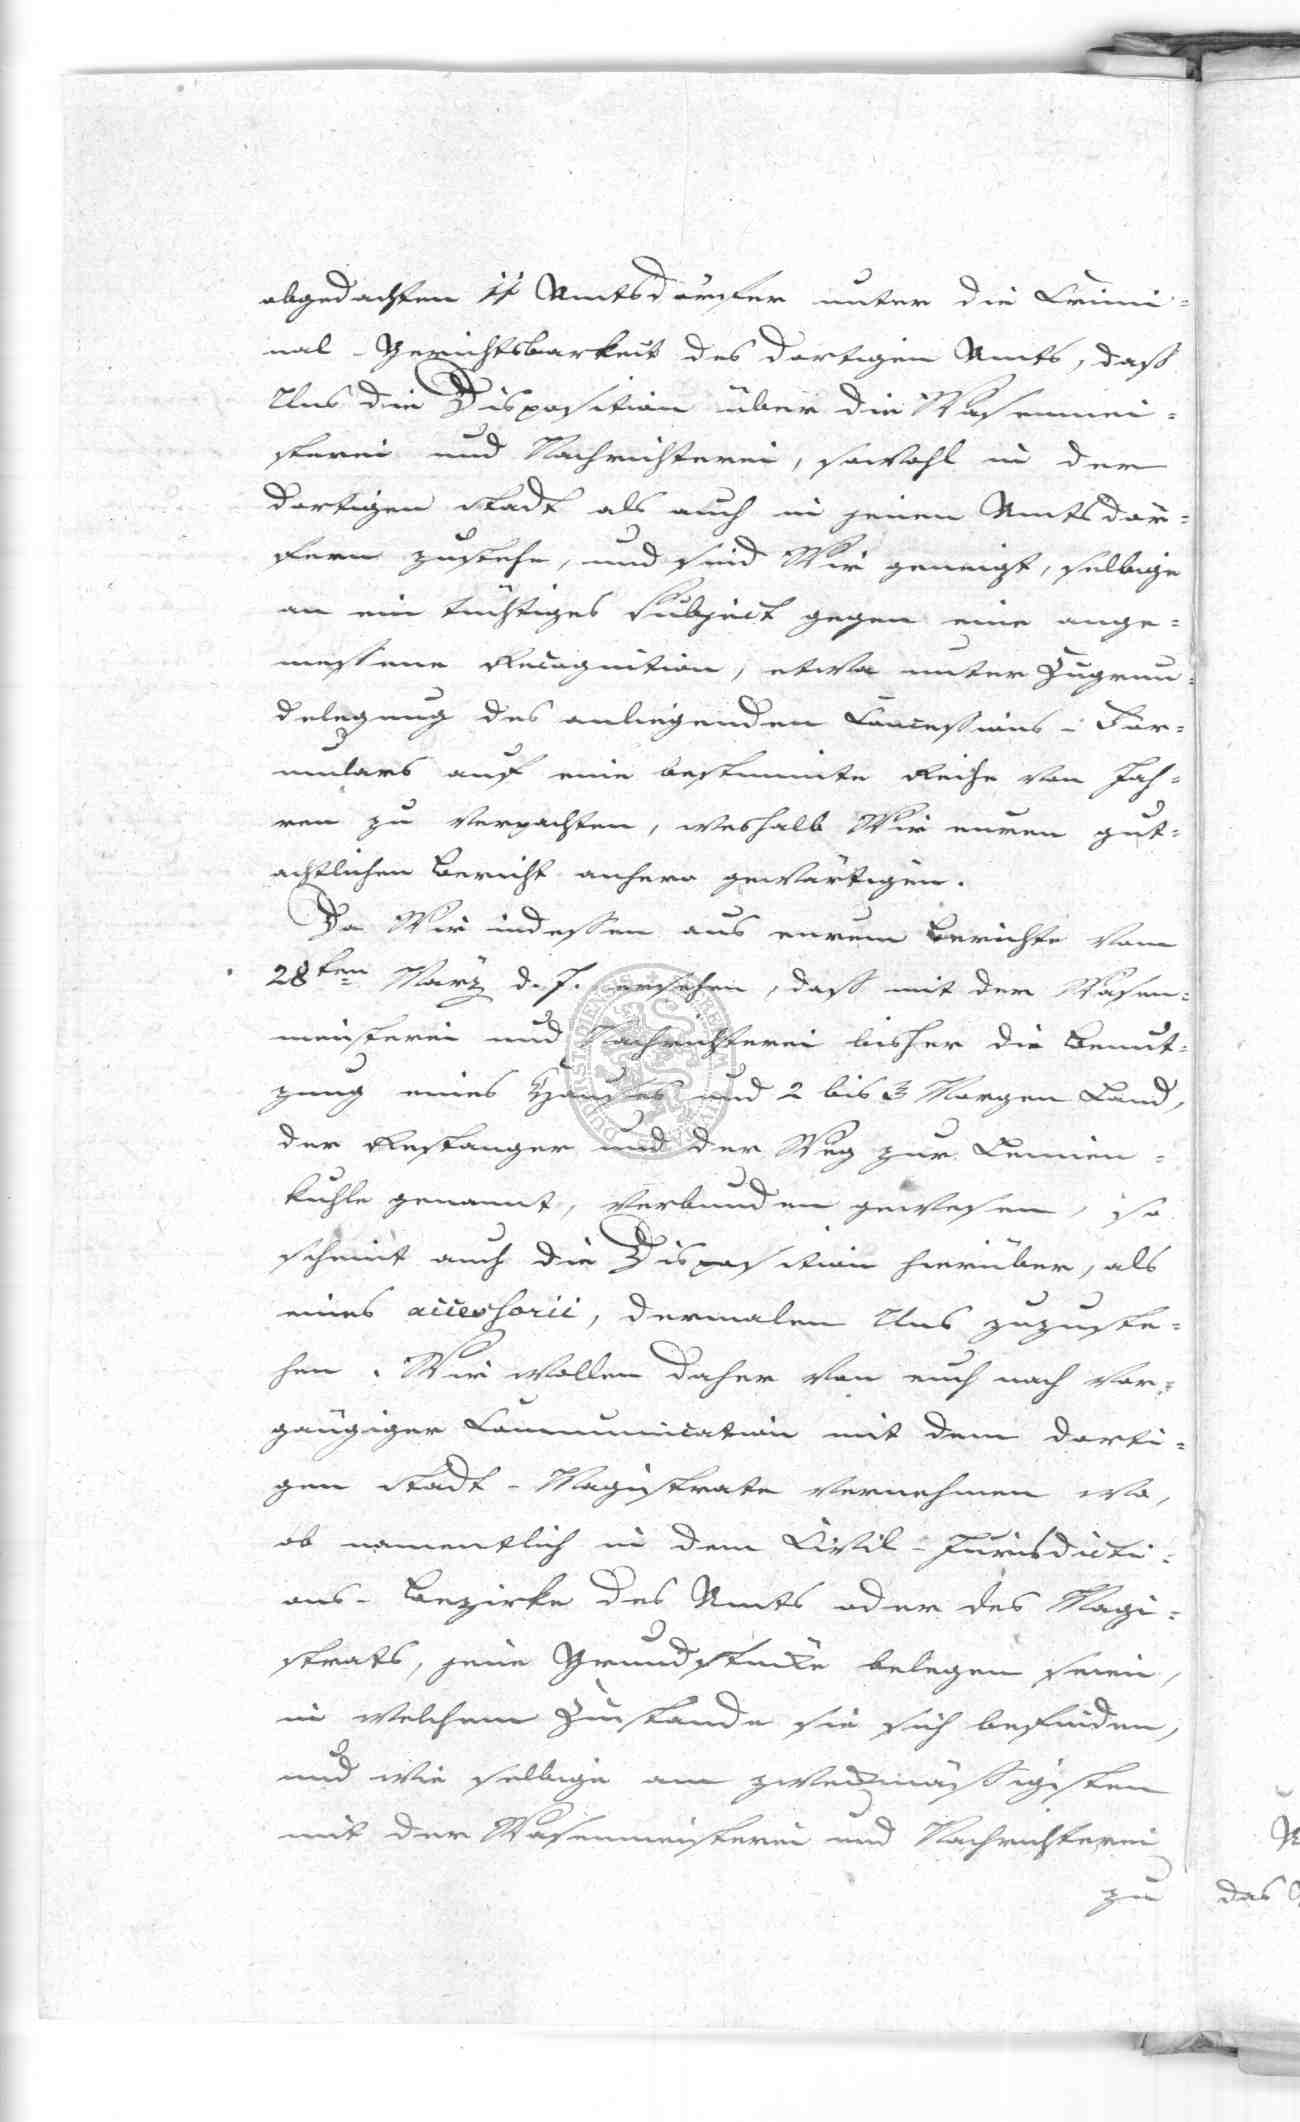 obgedachten 11 Amtsdörfer unter die Crimi-
nal-Gerichtsbarkeit des dortigen Amts, daß
Uns die Disposition über die Wasenmei-
sterei und Nachrichterei, sowohl in der
dortigen Stadt als auch in jenen Amtsdör-
fern zustehe, und sind Wir geneigt, selbige
an ein tüchtiges Subject gegen eine ange-
messene Recognition, etwa unter Zugrun-
delegung des anliegenden Concessions-For-
mulars auf eine bestimmte Reihe von Jah-
ren zu verpachten, weshalb Wir euren gut-
achtlichen Bericht anhero gewärtigen.
Da Wir indessen aus eurem Berichte vom
28ten März d. J. ersehen, daß mit der Wasen-
meisterei und Nachrichterei bisher die Benut-
zung eines Hauses und 2 bis 3 Morgen Land,
der Restanger und der Weg zur
kuhle genannt, verbunden gewesen, so
scheint auch die Disposition hierüber, als
eines accessorii, dermalen Uns zuzuste-
hen. Wir wollen daher von euch nach vor-
gängiger Communication mit dem dorti-
gen Stadt-Magistrate vernehmen wo,
ob namentlich in dem Civil-Jurisdicti-
ons-Bezirke des Amts oder des Magi-
strats, jene Grundstücke belegen seien,
in welchem Zustande sie sich befinden,
und wie selbige am zweckmäßigsten
mit der Wasenmeisterei und Nachrichterei
zu
das